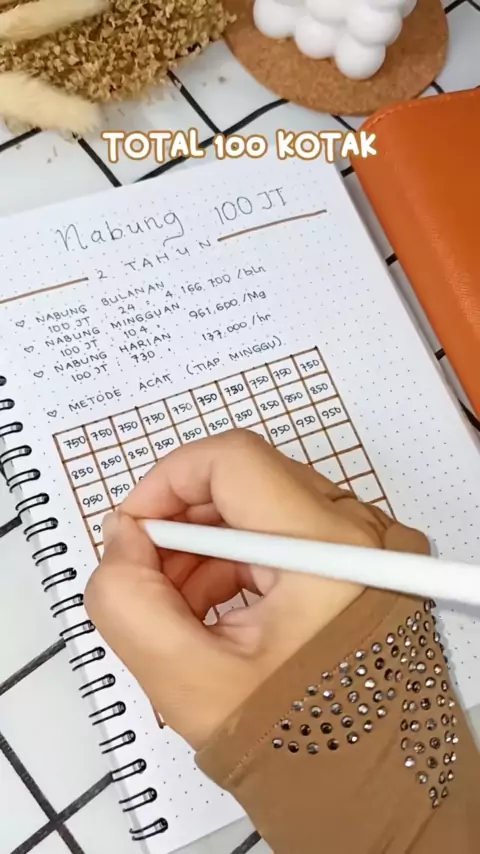 TOTAL 100 KOTAK
Nabung 100 JT
2 TAHUN
♡ NABUNG BULANAN
100 JT : 24 = 4.166.700 /bln
♡ NABUNG MINGGUAN
100 JT : 104 = 961.600 /Mg
♡ NABUNG HARIAN
100 JT : 730 = 137.000 /hr
♡ METODE ACAK (TIAP MINGGU)
750 750 750 750 750 750 750 750 750 750
850 850 850 850 850 850 850 850 850 850
950 950 950 950 950